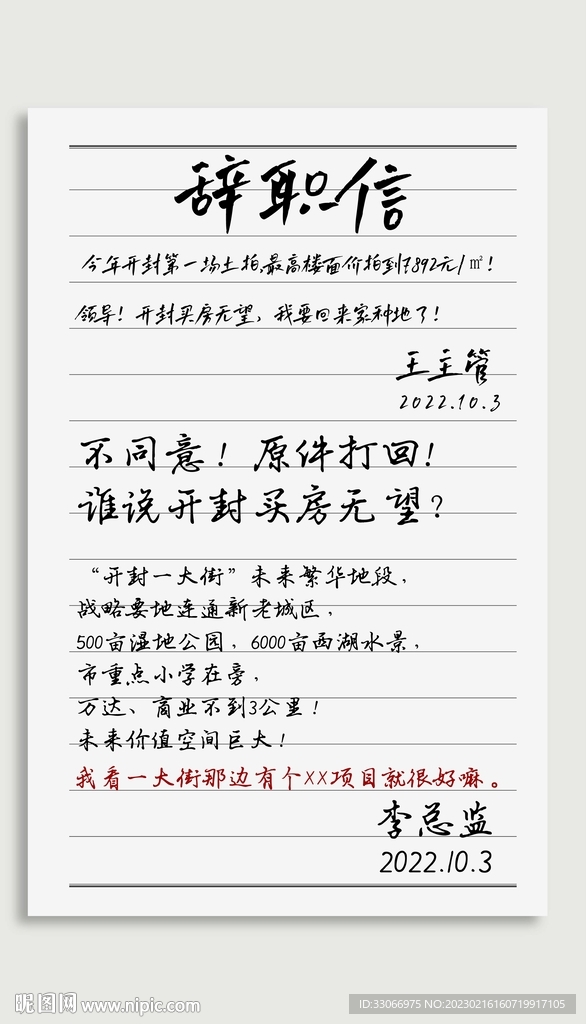 辞职信
今年开封第一场土拍,最高楼面价拍到7892元/㎡!
领导!开封买房无望,我要回来家种地了!
王主管
2022.10.3
不同意!原件打回!
谁说开封买房无望?
“开封一大街”未来繁华地段,
战略要地连通新老城区,
500亩湿地公园,6000亩西湖水景,
市重点小学在旁,
万达、商业不到3公里!
未来价值空间巨大!
我看一大街那边有个XX项目就很好嘛。
李总监
2022.10.3
昵图网 www.nipic.com
ID:33066975 NO:20230216160719917105